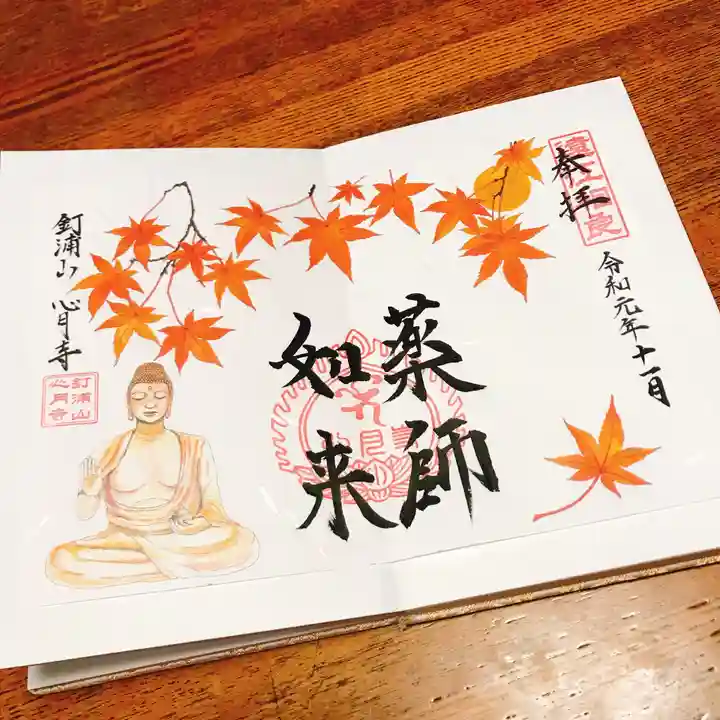 奉拝
令和元年十一月
薬師
如来
釘浦山 心月寺
釘浦山
心月寺